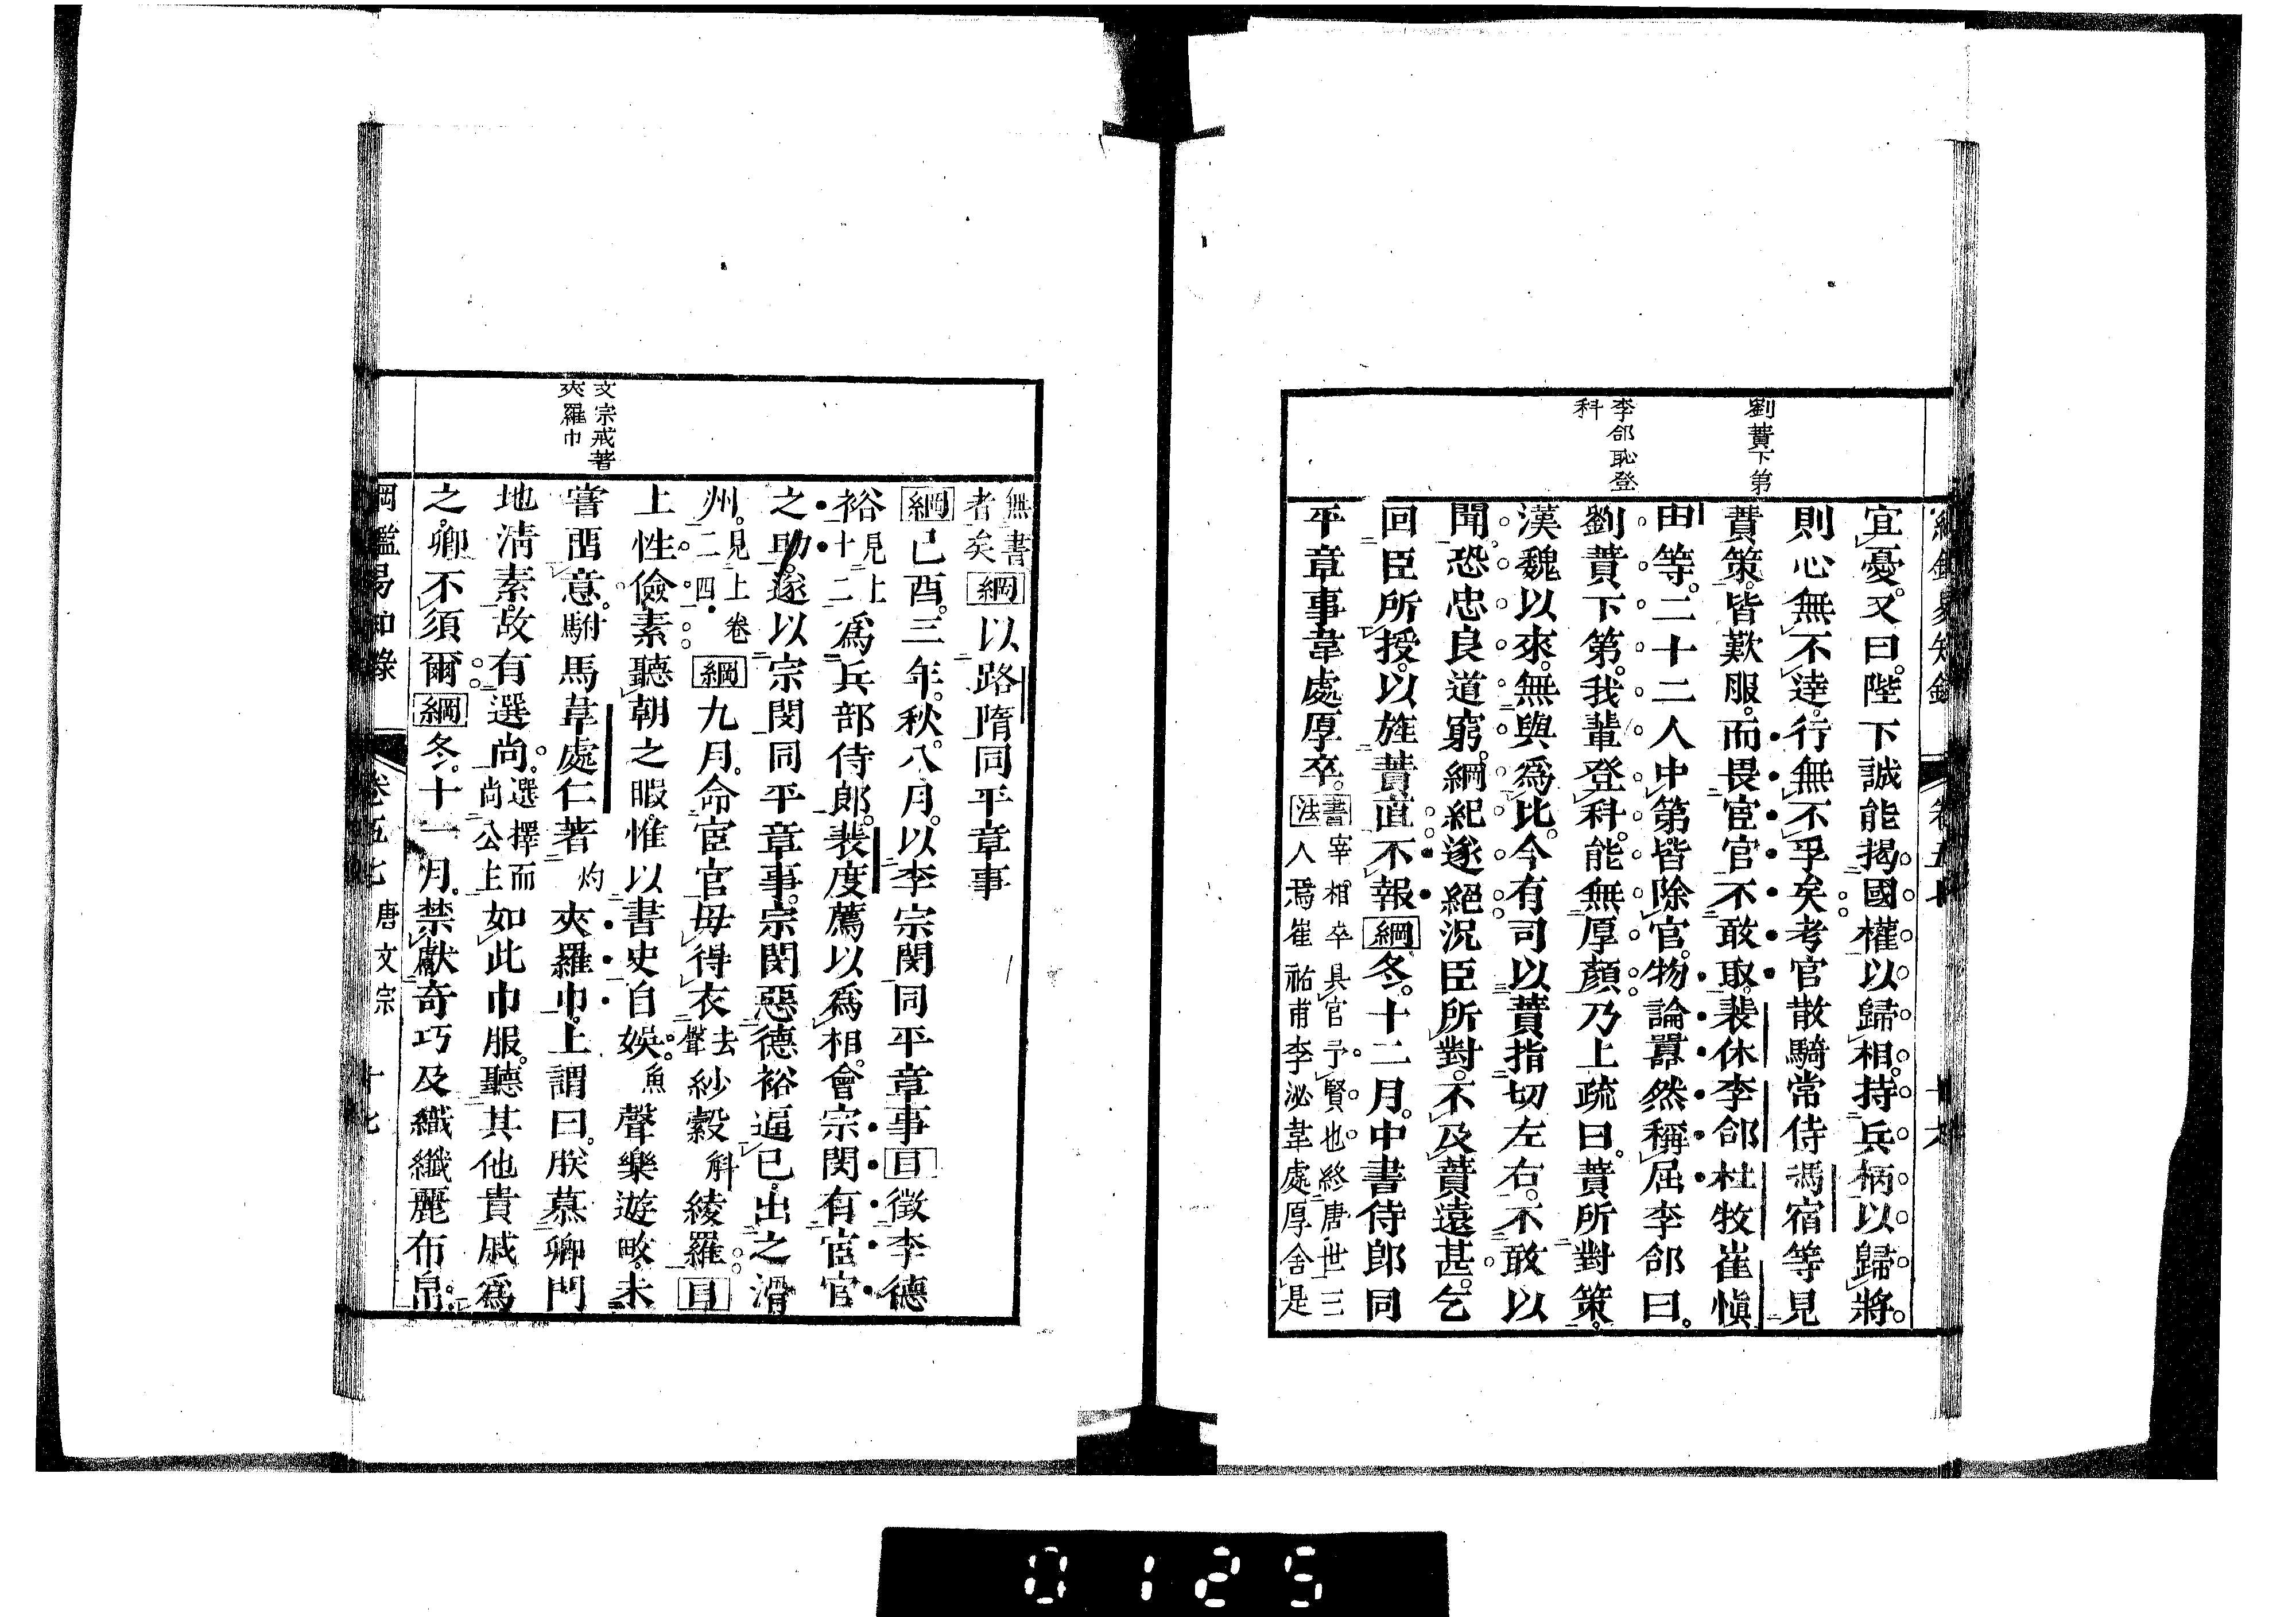 劉蕡下第
李郃恥登
科
宜憂。又曰。陛下誠能揭國權以歸相。持兵柄以歸將。
則心無不達。行無不孚矣。考官散騎常侍馮宿等見
蕡策。皆歎服。而畏宦官不敢取。裴休李郃杜牧崔愼
由等。二十二人中第。皆除官。物論囂然稱屈。李郃曰。
劉蕡下第。我輩登科。能無厚顏。乃上疏曰。蕡所對策。
漢魏以來。無與爲比。今有司以蕡指切左右。不敢以
聞。恐忠良道窮。綱紀遂絕。況臣所對。不及蕡遠甚。乞
回臣所授。以旌蕡直。不報綱冬。十二月。中書侍郎同
平章事韋處厚卒。書法宰相卒具官予賢也終唐世三
人焉崔祐甫李泌韋處厚舍是
文宗戒著
夾羅巾
無書
者矣綱以路隋同平章事
綱己酉。三年。秋。八月。以李宗閔同平章事目徵李德
裕見上十二爲兵部侍郎。裴度薦以爲相。會宗閔有宦官
之助。遂以宗閔同平章事。宗閔惡德裕逼己。出之滑
州。見上卷二四綱九月。命宦官毋得衣去聲紗縠斛綾羅。目
上性儉素。聽朝之暇。惟以書史自娛。魚聲樂遊畋。未
嘗畱意。駙馬韋處仁著灼夾羅巾。上謂曰。朕慕卿門
地淸素。故有選尚。選擇而尚公主如此巾服。聽其他貴戚爲
之。卿不須爾綱冬。十一月。禁獻奇巧及織纖麗布帛。
綱鑑易知錄 卷五七 唐文宗 十七